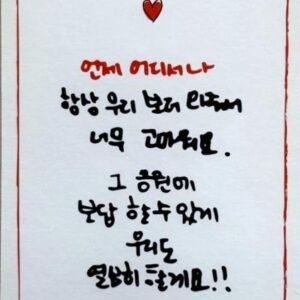 언제 어디서나
항상 우리 보러 와줘서
너무 고마워요.
그 응원에
보답 할 수 있게
우리도
열심히 할게요!!